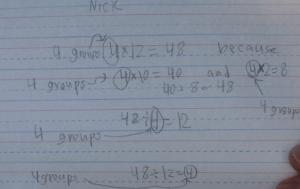 NICK
4 groups 4x12=48 because
4 groups 4x10=40 and 4x2=8
40+8=48
4 groups
48÷4=12
4 groups
48÷12=4
4 groups